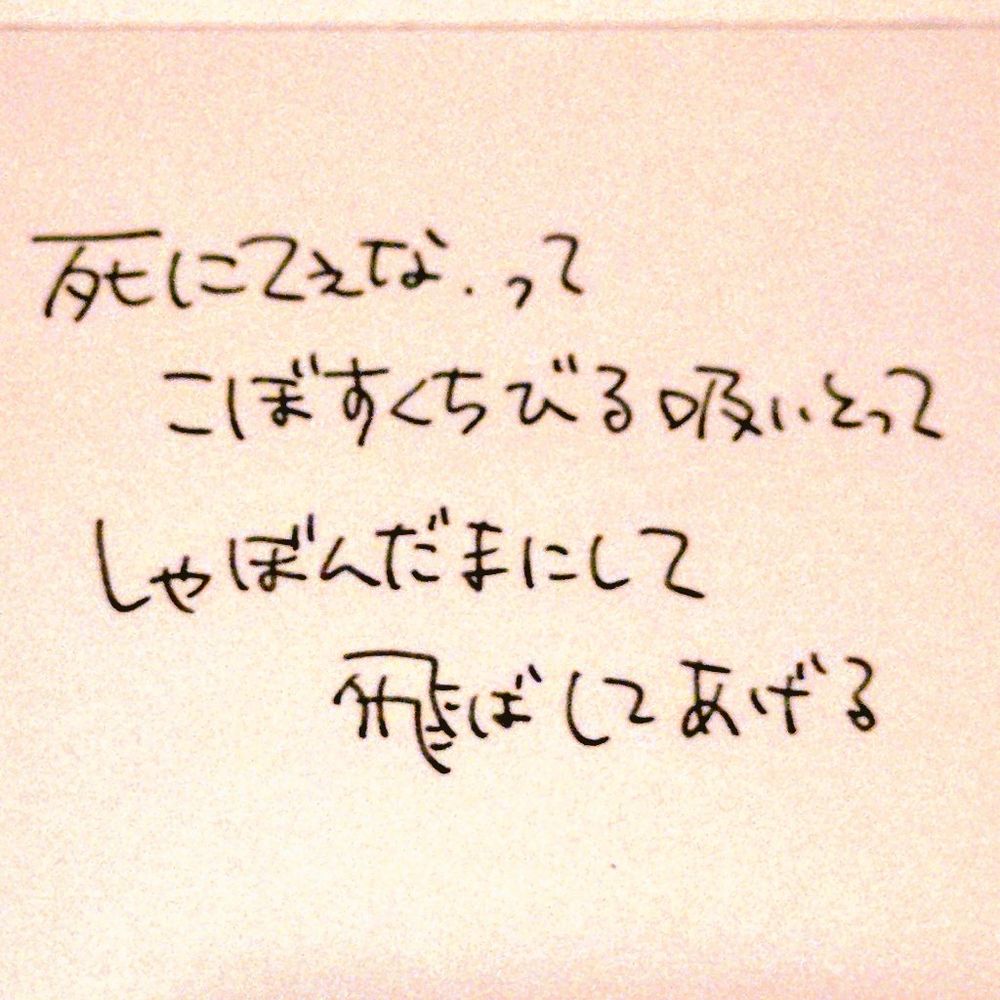 死にてえな.って
こぼすくちびる吸いとって
しゃぼんだまにして
飛ばしてあげる